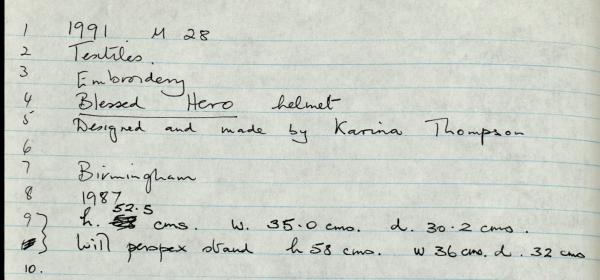 1 1991 M 28
2 Textiles.
3 Embroidery
4 Blessed Hero helmet
5 Designed and made by Karina Thompson
6
7 Birmingham
8 1987
52.5
9 h. cms. w. 35.0 cms. d. 30.2 cms.
With perspex stand h 58 cms. w 36 cms. d. 32 cms
10.